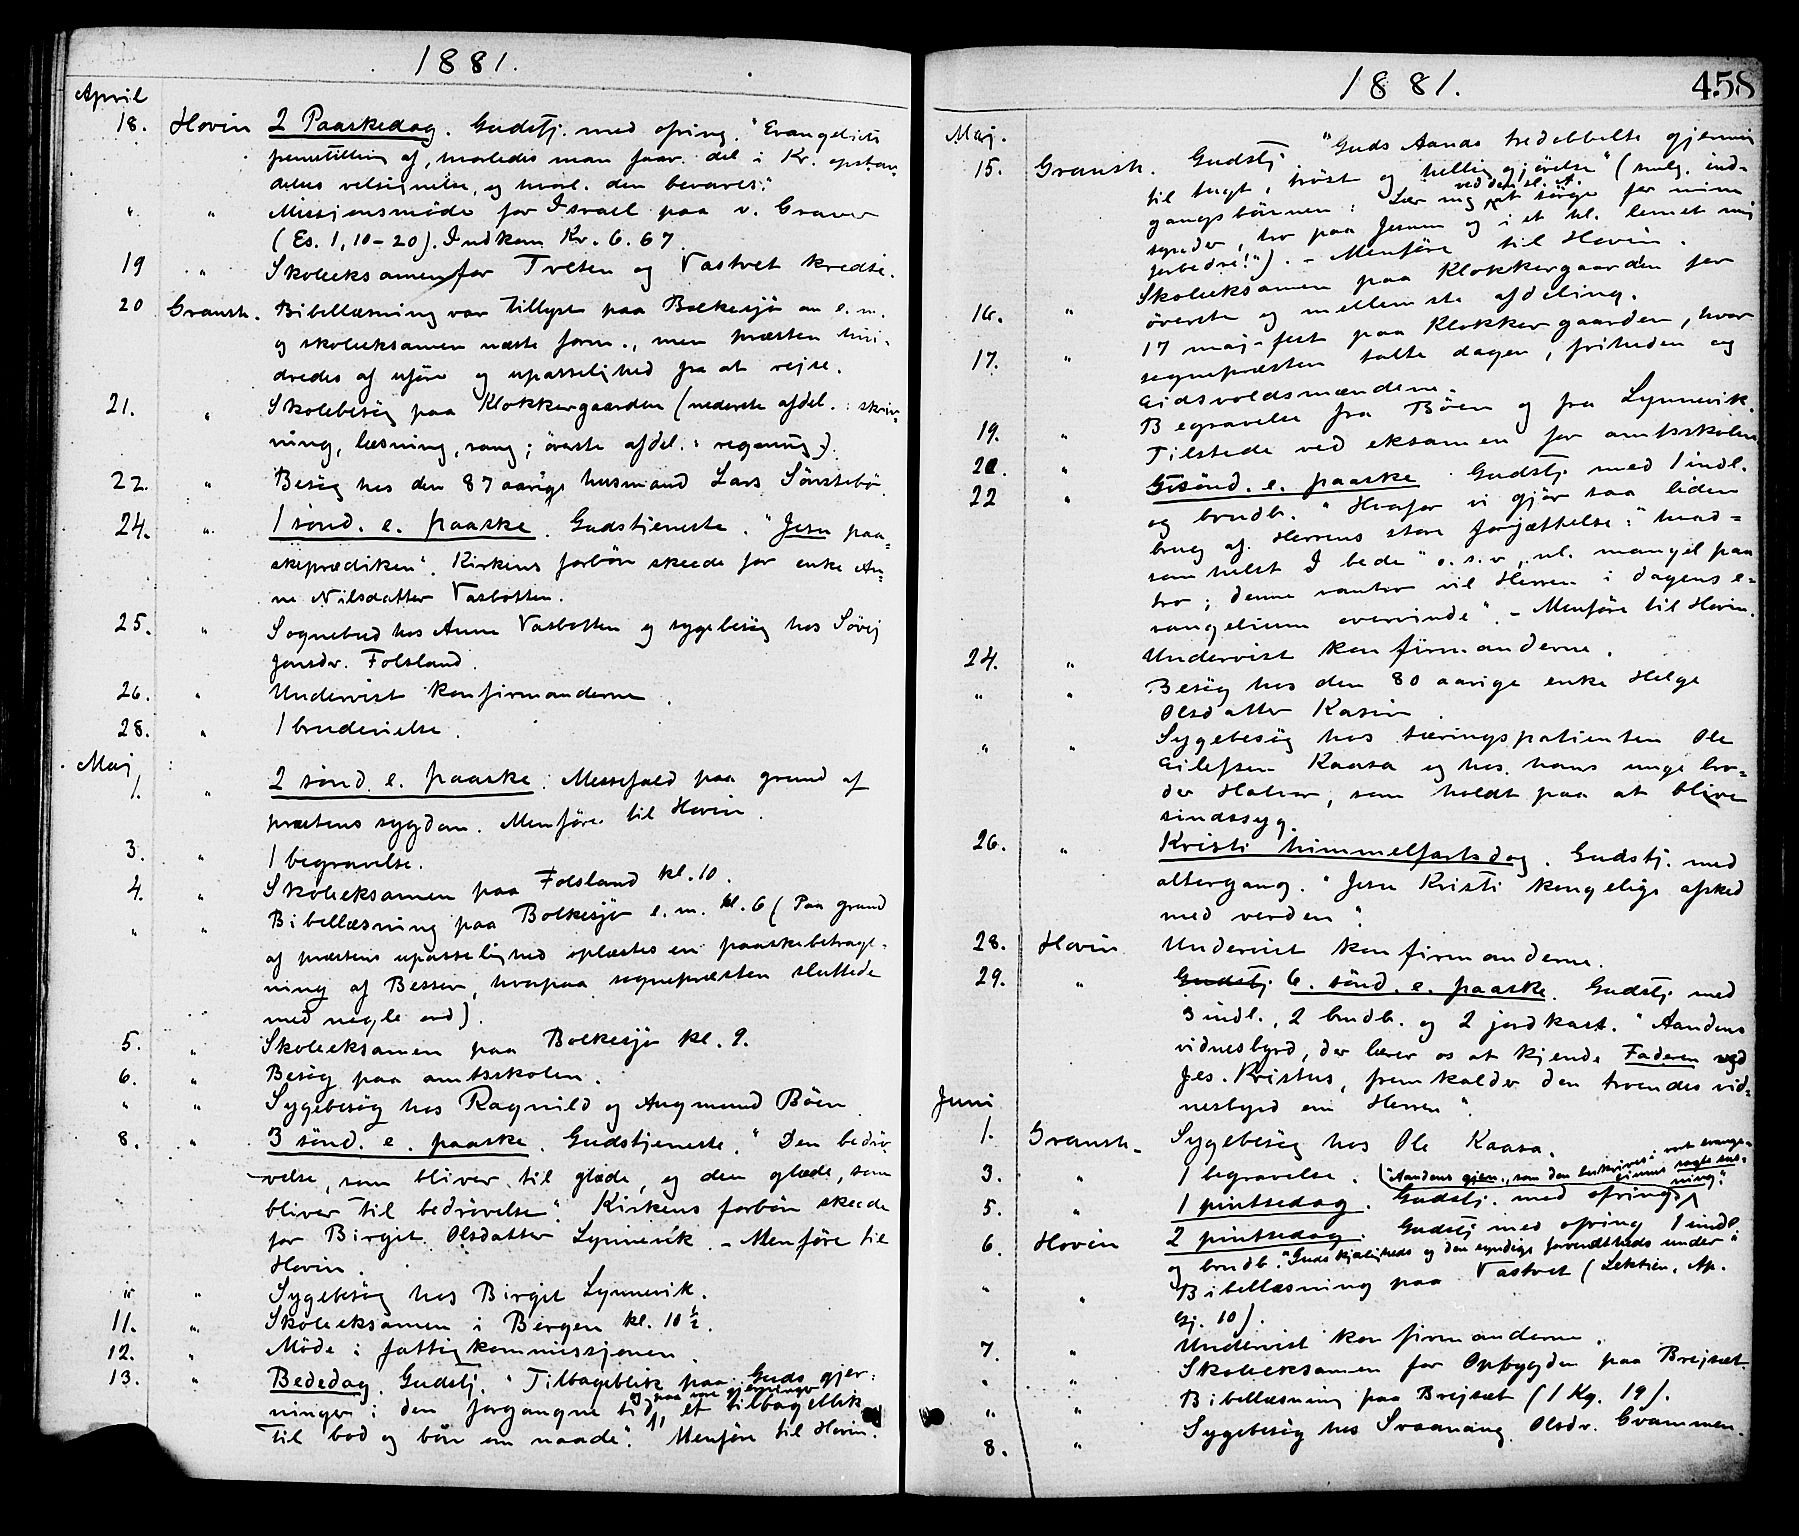 1881.
April
18. Hovin 2 Paaskedag. Gudstj. med ofring. "Evangeliets
fremstilling af, hvorledes man faar del i Kr. opstan-
delses velsignelse, og hvorl. den bevares."
" " Missjonsmøde for Israel paa v. Graver
(Es. 1, 10-20). Indkom Kr. 6.67.
19 " Skoleeksamen for Tveten og Vastvet kredse.
20 Gransh. Bibellæsning var tillyst paa Bolkesjø on e.m.
og skoleeksamen næste form., men præsten hin-
dredes af uføre og upasselighed fra at rejse.
21. " Skolebesøg paa Klokkergaarden (nederste afdel.: skriv-
ning, læsning, sang; øverste afdel.: regning).
22. " Besøg hos den 87 aarige husmand Lars Sønstebø.
24. " 1 sønd. e. paaske. Gudstjeneste. "Jesu paa-
skeprædiken". Kirkens forbøn skeede for enke An-
ne Nilsdatter Vasbotten.
25. " Sognebud hos Anne Vasbotten og sygebesøg hos Søvej
Jonsdr. Folsland.
26. " Undervist konfirmanderne.
28. " 1 brudevielse.
Maj
1. " 2 sønd. e. paaske. Messefald paa grund af
præstens sygdom. Menføre til Hovin.
3. " 1 begravelse.
4. " Skoleeksamen paa Folsland kl. 10.
" " Bibellæsning paa Bolkesjø e.m. kl. 6 (Paa grund
af præstens upasselighed oplæstes en paaskebetragt-
ning af Besser, hvorpaa sognepræsten sluttede
med nogle ord).
5. " Skoleeksamen paa Bolkesjø kl. 9.
6. " Besøg paa amtsskolen.
" " Sygebesøg hos Ragnild og Angmund Bøen.
8. " 3 sønd. e. paaske. Gudstjeneste. "Den bedrø-
velse, som bliver til glæde, og den glæde, som
bliver til bedrøvelse". Kirkens forbøn skeede
for Birgit Olsdatter Lynnevik. - Menføre til
Hovin.
" " Sygebesøg hos Birgit Lynnevik.
11. " Skoleeksamen i Bergen kl. 10 ½.
12. " Møde i fattigkommissjonen.
13. " Bededag. Gudstj. "Tilbageblik paa Guds gjer-
og paa vore gjerninger
ninger i den forgangne tid, et tilbageblik
til bod og bøn om naade". Menføre til Hovin.
1881. 458
Maj.
15. Gransh. Gudstj. "Guds Aands tredobbelte gjerning
til tugt, trøst og helliggjørelse" (smlg. ind-
ved den hl. A.
gangsbønnen: Lær mig at sørge for mine
synder, tro paa Jesum og i et hl. levnet mig
forbedre!"). - Menføre til Hovin.
16. " Skoleeksamen paa Klokkergaarden for
øverste og mellemste afdeling.
17. " 17 maj-fest paa Klokkergaarden, hvor
sognepræsten talte dagen, friheden og
Eidsvoldsmændene.
19. " Begravelse fra Bøen og fra Lynnevik.
21. " Tilstede ved eksamen for amtsskolen
22 " 5 sønd. e. paaske. Gudstj. med 1 indl.
og brudb. "Hvofor vi gjør saa liden
brug af Herrens store forjættelse: "hvad-
somhelst I bede" o.s.v., nl. mangel paa
tro; denne vantro vil Herren i dagens e-
vangelium overvinde". - Menføre til Hovin.
24. " Undervist konfirmanderne.
" " Besøg hos den 80 aarige enke Helge
Olsdatter Kasin.
" " Sygebesøg hos tæringspatienten Ole
Eilefsen Kaasa og hos hans unge bro-
der Halvor, som holdt paa at blive
sindssyg.
26. " Kristi himmelfartsdag. Gudstj. med
altergang. "Jesu Kristi kongelige afsked
med verden".
28. Hovin Undervist konfirmanderne.
29. " Gudstj. 6. sønd. e. paaske. Gudstj. med
3 indl., 2 brudb. og 2 jordkast. "Aandens
vidnesbyrd, der lærer os at kjende Faderen ved
Jes. Kristus, fremkalder den troendes vid-
nesbyrd om Herren".
Juni
1. Gransh. Sygebesøg hos Ole Kaasa.
3. " 1 begravelse. ("Aandens gjern., som den beskrives i vort evange-
5. " 1 pintsedag. Gudstj. med ofring
6. Hovin 2 pintsedag. Gudstj. med ofring 1 indl.
og brudb. "Guds kjærligheds og den syndige forvendtheds under"
" " Bibellæsning paa Vastvet (Lektien, Ap.
Gj. 10).
7. " Undervist konfirmanderne.
" " Skoleeksamen for Opbygden paa Brejsæt.
" " Bibellæsning paa Brejsæt (1 Kg. 19).
8. " Sygebesøg hos Svanaug Olsdr. Gvammen.